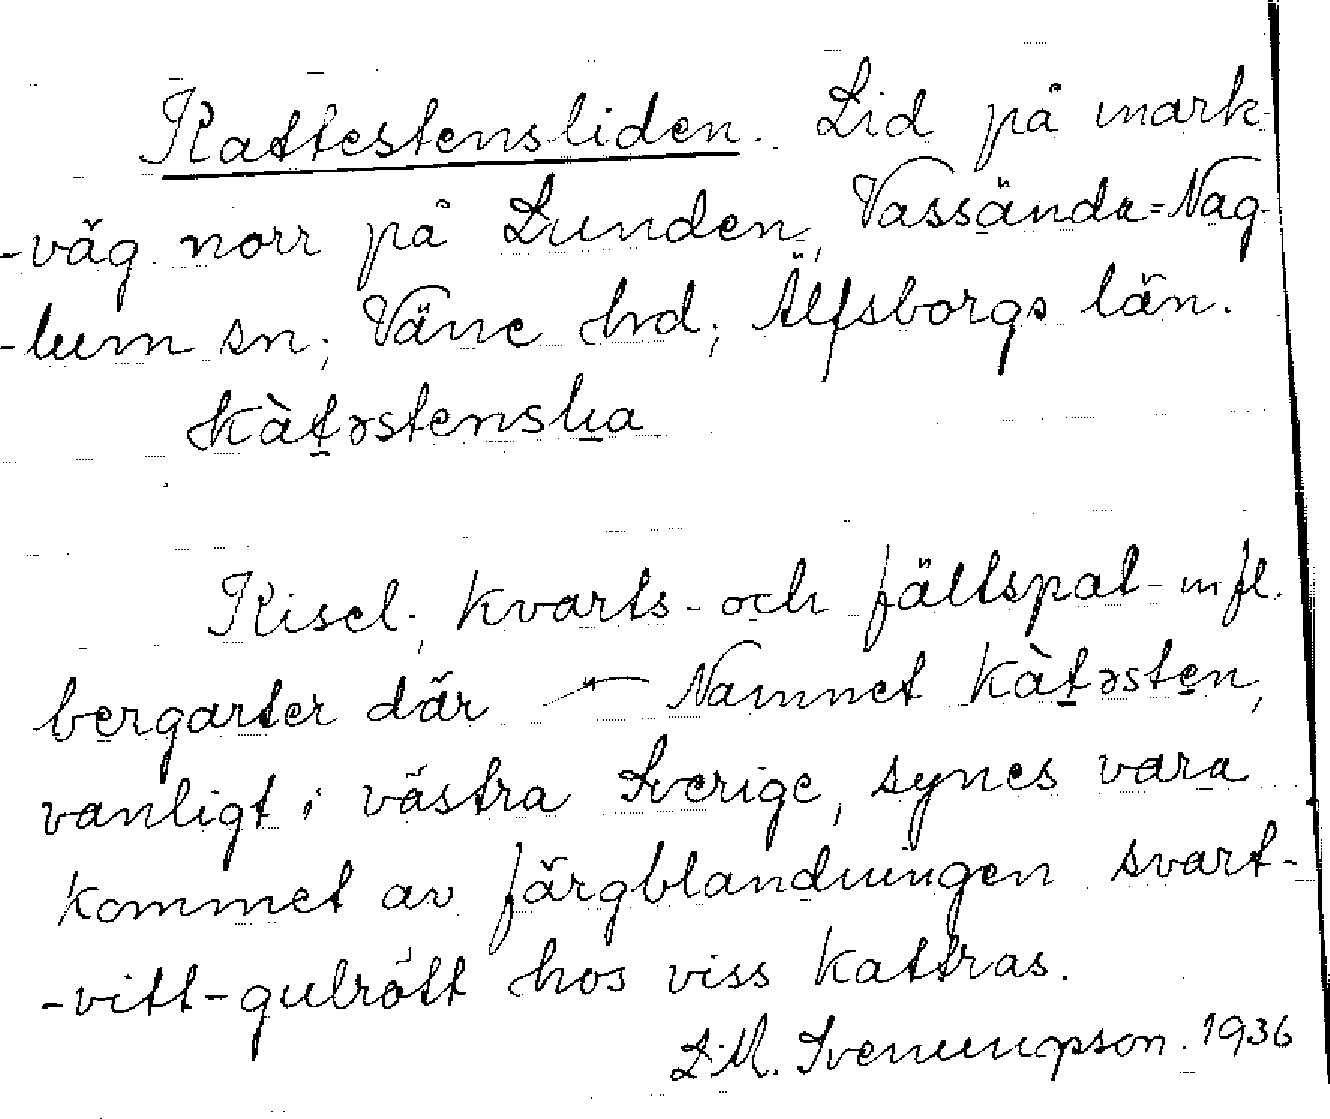 Kattestensliden. Lid på mark-
-väg norr på Lunden, Vassända=Nag-
-lum sn, Väne hd, Älfsborgs län.
kàt̠əstenslia
Kisel-, kvarts- och fältspat- m fl.
bergarter där — Namnet kàt̠əsten,
vanligt i västra Sverige, synes vara
kommet av färgblandningen svart-
-vitt-gulrött hos viss kattras.
L.M. Svenungsson. 1936